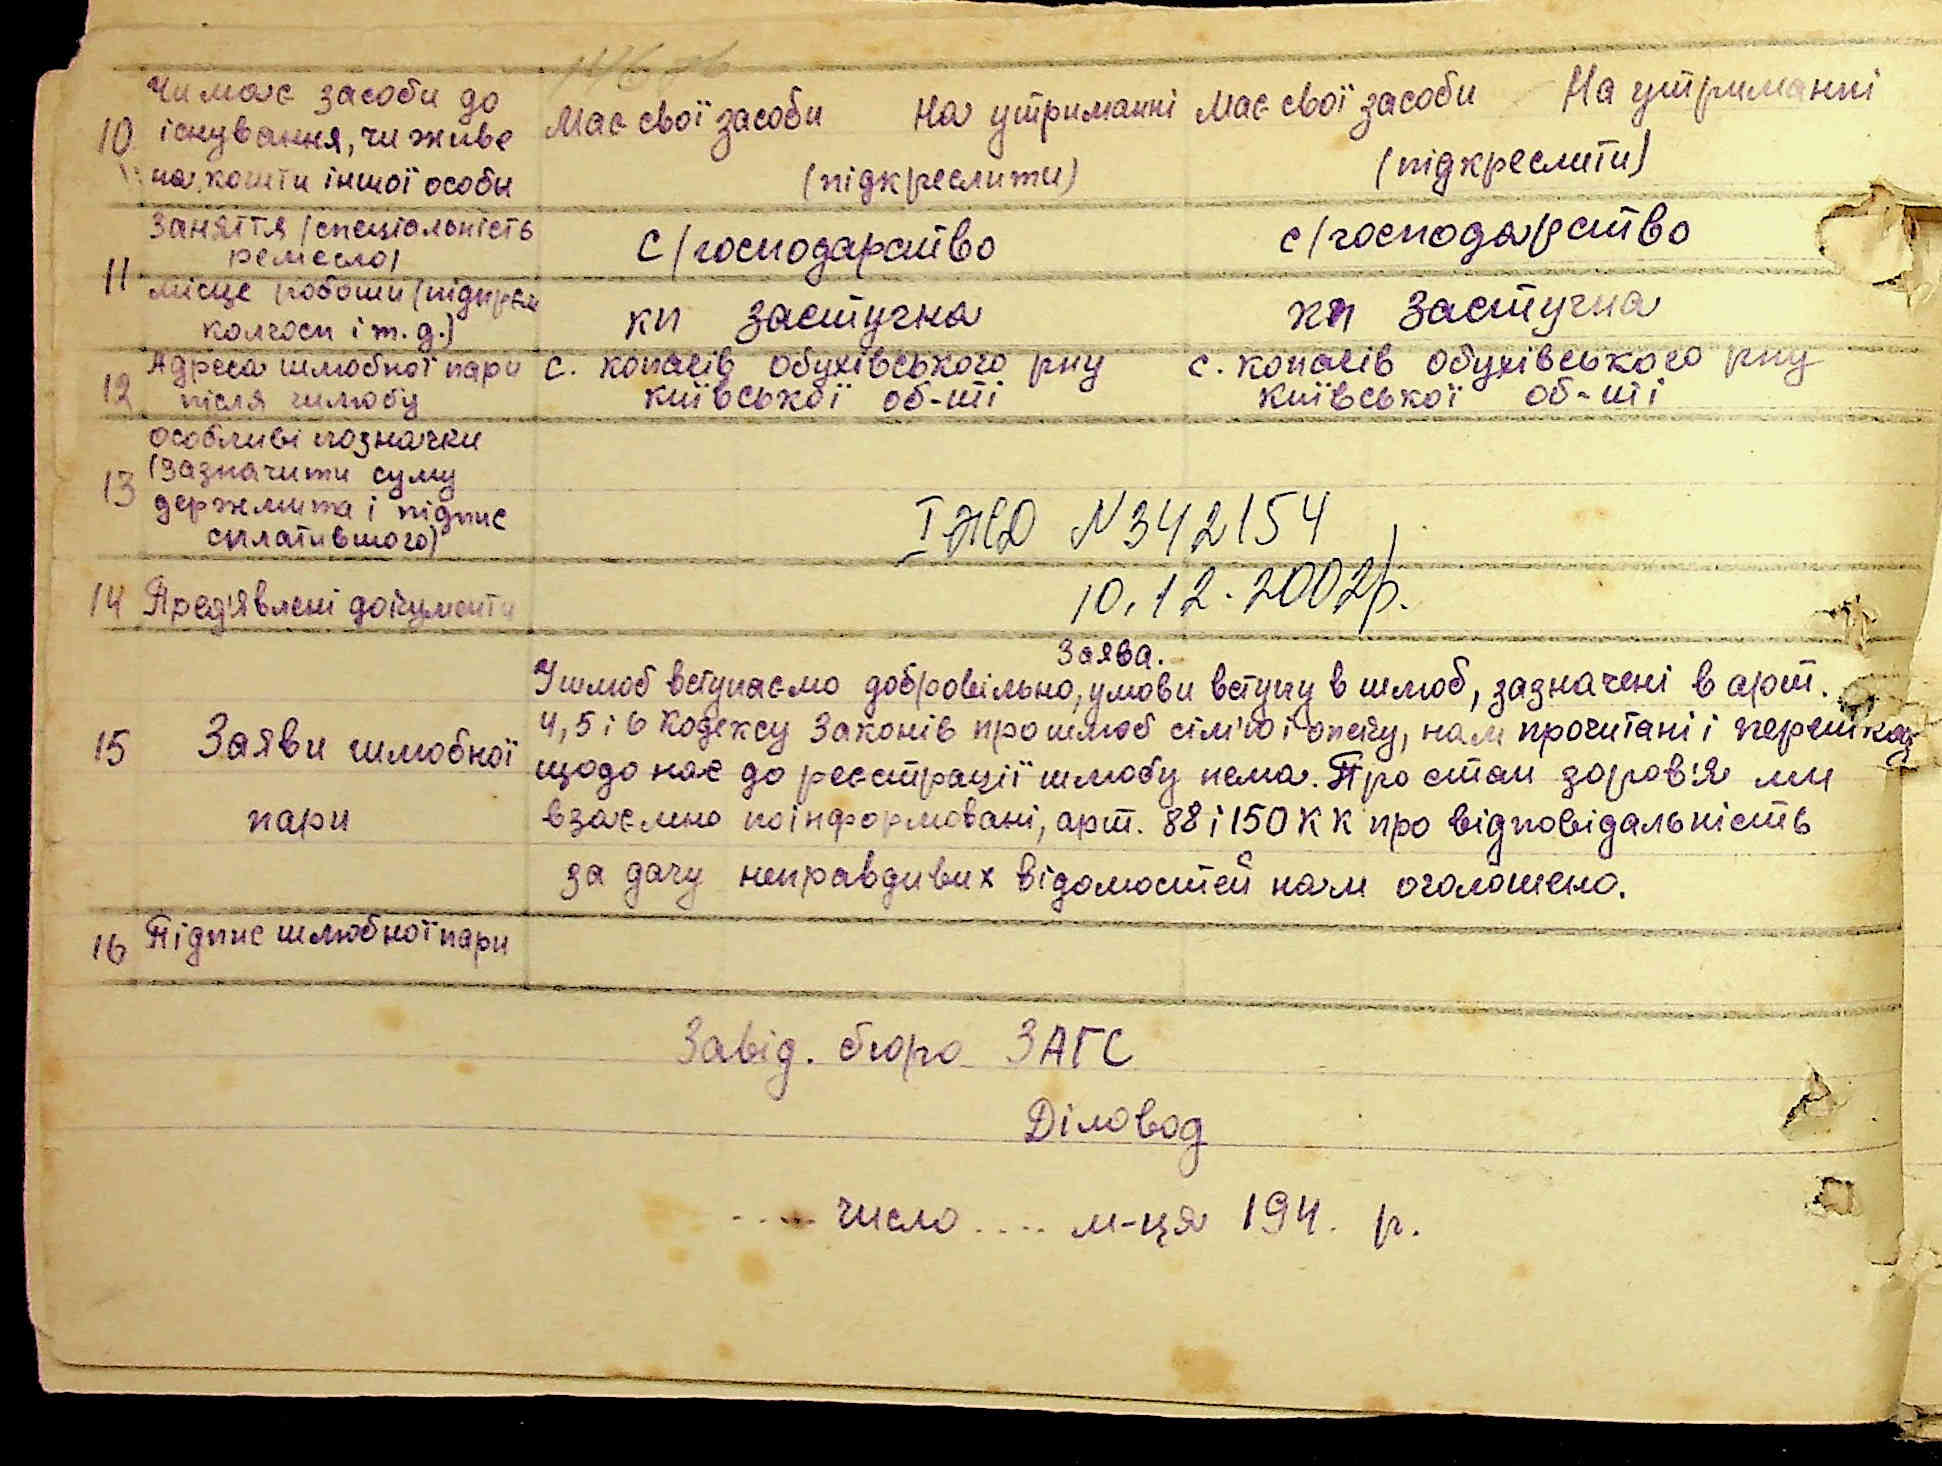 Чи має засоби до
10 існування, чи живе
на кошти іншої особи
Має свої засоби На утриманні Має свої засоби На утриманні
(підкреслити) (підкреслити)
Заняття (спеціальність
ремесло)
с/господарство с/господарство
11 місце роботи (підприєм
колгосп і т. д.)
кп Застугна кп Застугна
12 Адреса шлюбної пари
після шлюбу
с. Копачів Обухівського р-ну с. Копачів Обухівського р-ну
Київської об-ті Київської об-ті
особливі позначки
13 (зазначити суму
держмита і підпис
сплатившого)
І ЖД N 342154
10.12.2002р.
14 Пред'явлені документи
15 Заяви шлюбної
пари
Заява.
У шлюб вступаємо добровільно, умови вступу в шлюб, зазначені в арт.
4, 5 і 6 Кодексу Законів про шлюб сім'ю і опеку, нам прочитані і перешкод
щодо нас до реєстрації шлюбу нема. Про стан здоров'я ми
взаємно поінформовані, арт. 88 і 150 КК про відповідальність
за дачу неправдивих відомостей нам оголошено.
16 Підпис шлюбної пари
Завід. бюро ЗАГС
Діловод
..... число .... м-ця 194. р.